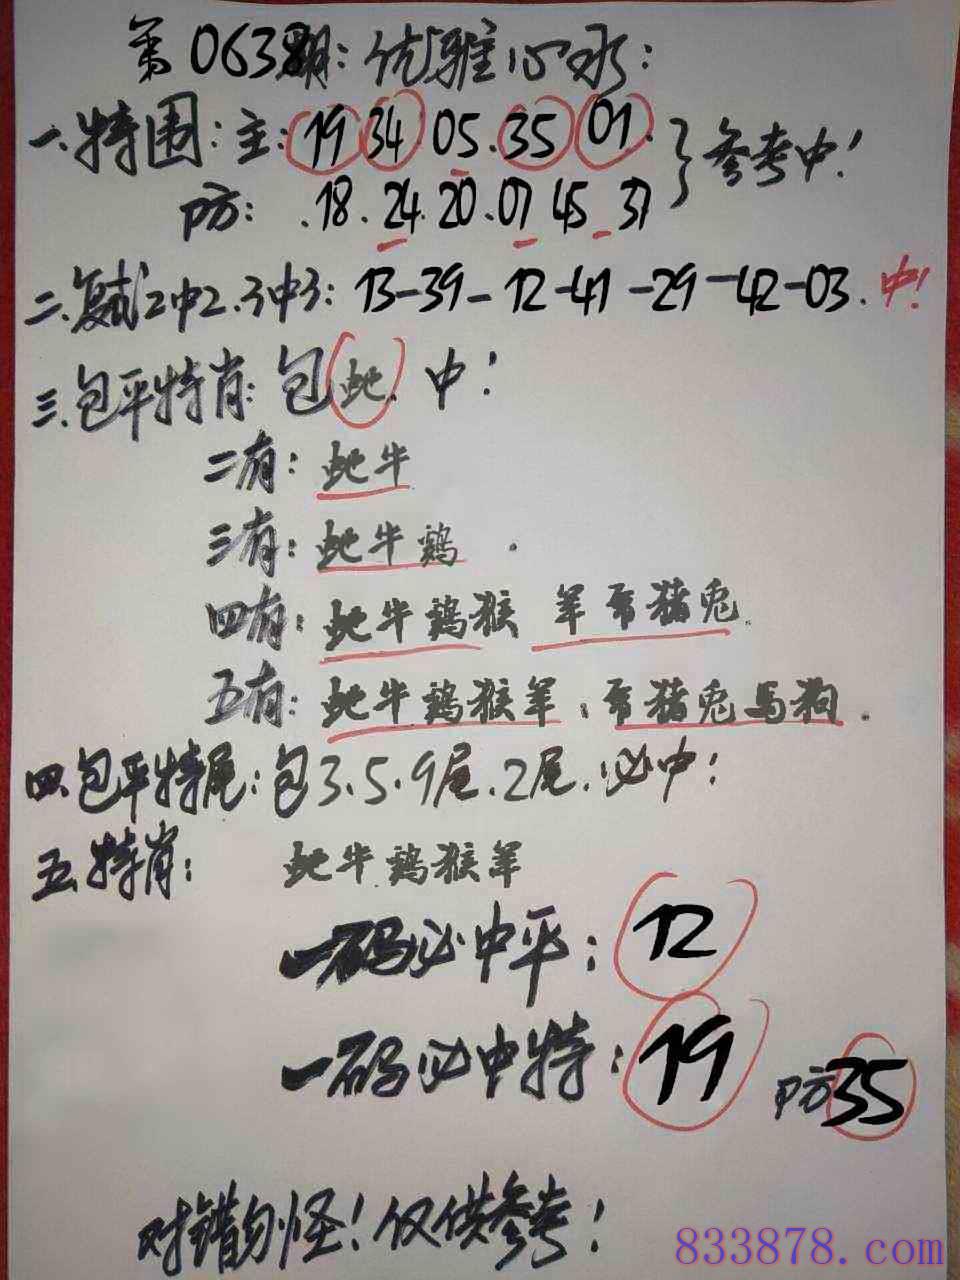 第0638期:优雅心水:
一.特围:主:19 34.05.35 01.}参考中!
防:.18.24.20.07 45.37
二.复试2中2.3中3:13-39-12-41-29-42-03.中!
三.包平特肖:包蛇.中!
二有:蛇牛
三有:蛇牛鸡.
四有:蛇牛鸡猴 羊虎猪兔.
五有:蛇牛鸡猴羊.虎猪兔马狗.
四.包平特尾:包3.5.9尾.2尾.必中!
五.特肖:蛇牛鸡猴羊
一码必中平:12
一码必中特:19 防35
对错勿怪!仅供参考!
833878.com